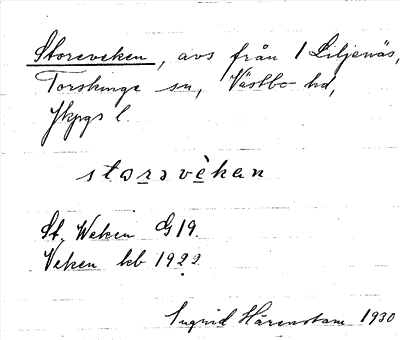 Storeveken, avs från 1 Liljenäs,
Torskinge sn, Västbo hd,
Jkpgs l.
storəvèkan
St. Weken G19.
Veken kb 1922.
Ingrid Härenstam 1930